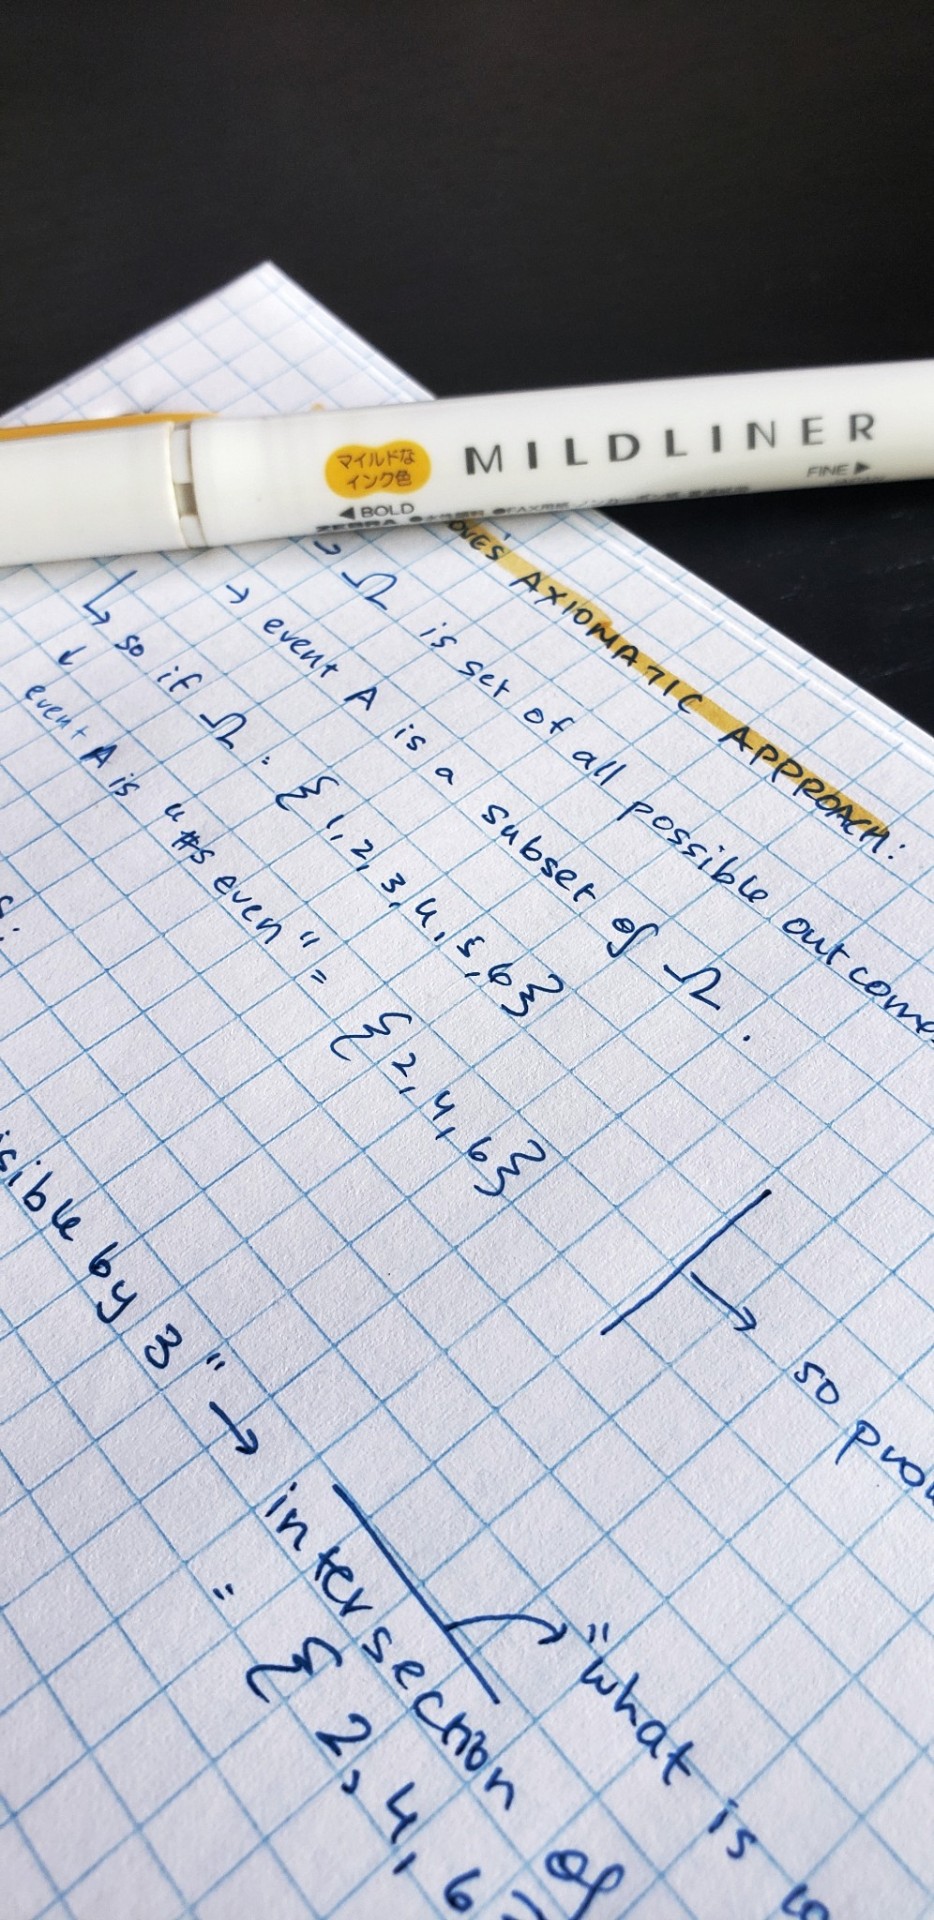 マイルドな
インク色
MILDLINER
FINE ▶
◀ BOLD
ZEBRA
OVE'S AXIOMATIC APPROACH:
→ Ω is set of all possible outcome
→ event A is a subset of Ω.
↳ so if Ω = {1,2,3,4,5,6}
↓
event A is "#s even" = {2,4,6}
→ so
sible by 3" → intersection of
= {2,4,6
→ "what is